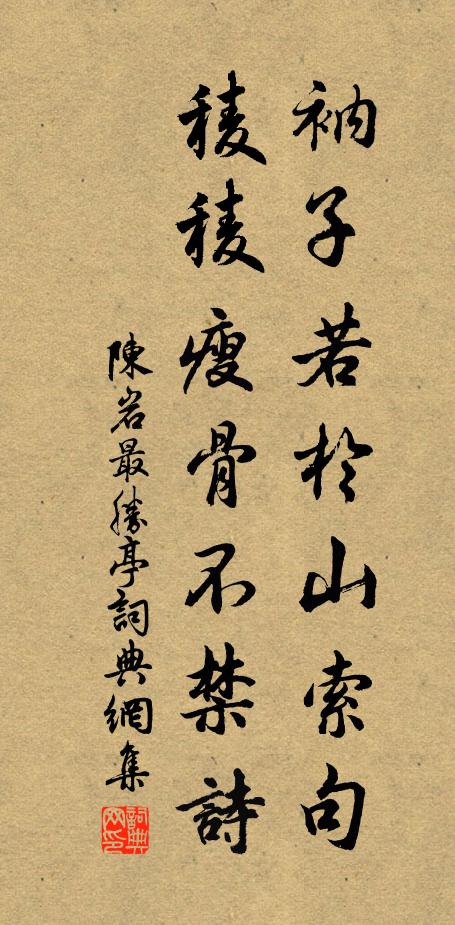 衲子若於山索句
稜稜瘦骨不禁詩
陳岩最勝亭詞典網集
詞典网印